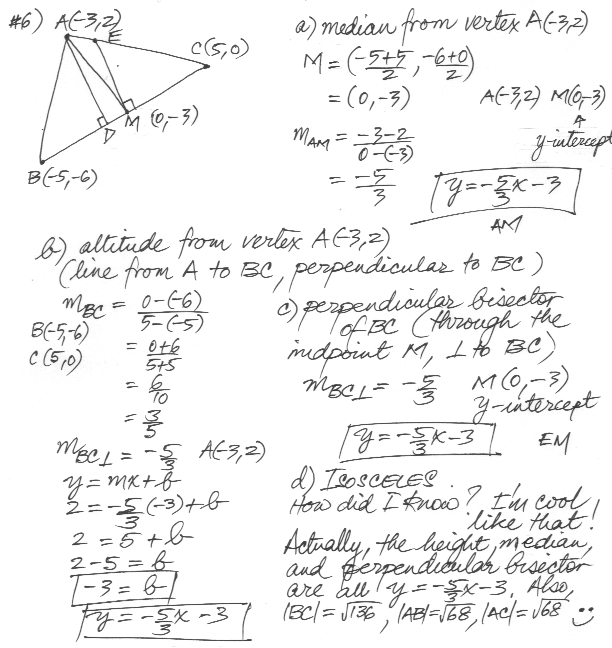 #6) A(-3,2)
E
C(5,0)
M (0,-3)
D
B(-5,-6)
a) median from vertex A(-3,2)
M = (-5+5/2, -6+0/2)
= (0,-3) A(-3,2) M(0,-3)
y-intercept
m_AM = -3-2/0-(-3)
= -5/3
y = -5/3x - 3
AM
b) altitude from vertex A(-3,2)
(line from A to BC, perpendicular to BC)
m_BC = 0-(-6)/5-(-5)
B(-5,-6)
C(5,0)
= 0+6/5+5
= 6/10
= 3/5
m_BC⊥ = -5/3 A(-3,2)
y = mx + b
2 = -5/3(-3) + b
2 = 5 + b
2 - 5 = b
-3 = b
y = -5/3x - 3
c) perpendicular bisector
of BC (through the
midpoint M, ⊥ to BC)
m_BC⊥ = -5/3 M(0,-3)
y-intercept
y = -5/3x - 3 EM
d) ISOSCELES.
How did I know? I'm cool
like that!
Actually, the height, median,
and perpendicular bisector
are all y = -5/3x - 3. Also,
|BC| = √136, |AB| = √68, |AC| = √68 :)